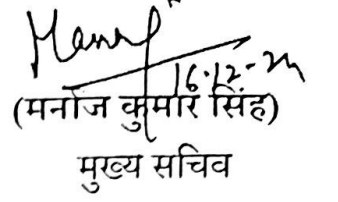 16.12-24
(मनोज कुमार सिंह)
मुख्य सचिव